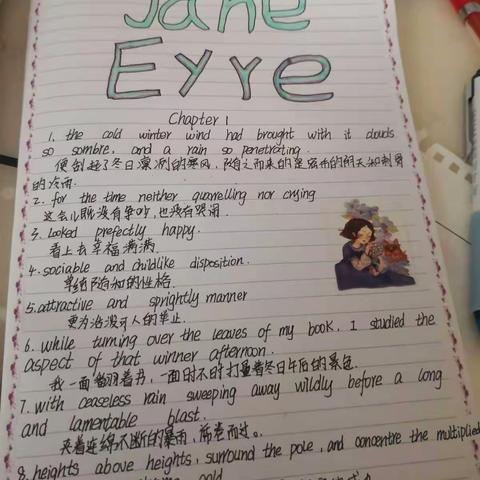 Jane
Eyre
Chapter 1
1. the cold winter wind had brought with it clouds
so sombre, and a rain so penetrating.
便刮起了冬日凛冽的寒风,随之而来的是密布的阴天和刺骨
的冷雨.
2. for the time neither quarrelling nor crying
这会儿既没有争吵,也没有哭闹.
3. Looked prefectly happy.
看上去幸福满满.
4. sociable and childlike disposition.
随和的性格.
5. attractive and sprightly manner
更为活泼可人的举止.
6. while turning over the leaves of my book, I studied the
aspect of that winner afternoon.
我一面翻着书,一面时不时打量着冬日午后的景色.
7. with ceaseless rain sweeping away wildly before a long
and lamentable blast.
夹着连绵不断的暴雨,席卷而过。
8. heights above heights, surround the pole, and concentre the multiplied
cold